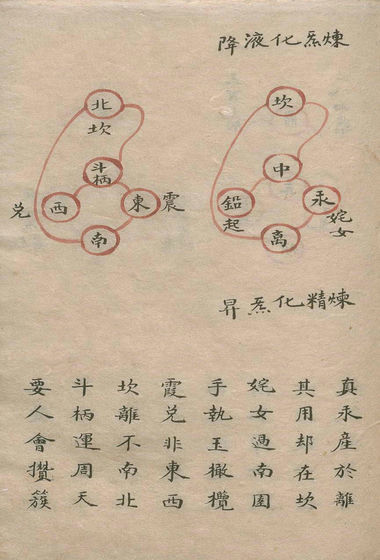 煉炁化液降
坎
中
汞
姹女
鉛
起
離
煉精化炁昇
北
坎
斗柄
震
東
西
兌
南
真汞產於離
其用却在坎
姹女過南園
手執玉橄欖
霞兌非東西
坎離不南北
斗柄運周天
要人會攢簇